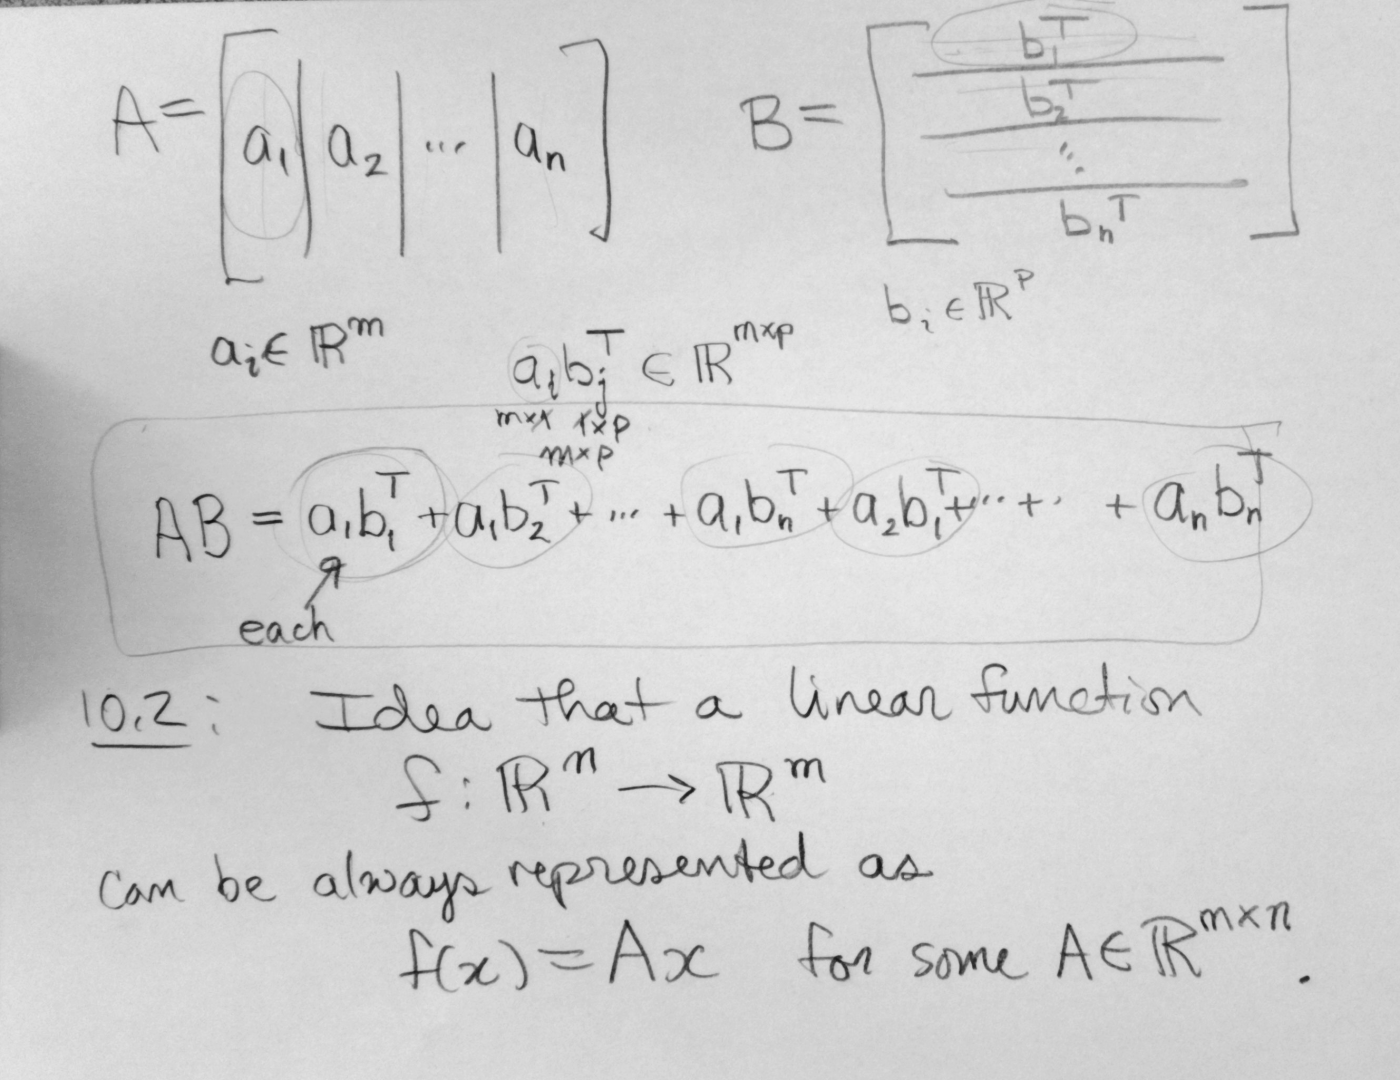 A = [ a₁ | a₂ | ... | aₙ ]
B = [ b₁ᵀ
b₂ᵀ
⋮
bₙᵀ ]
aᵢ ∈ ℝᵐ
bᵢ ∈ ℝᵖ
aᵢbⱼᵀ ∈ ℝᵐˣᵖ
m×1 1×p
m×p
AB = a₁b₁ᵀ + a₁b₂ᵀ + ... + a₁bₙᵀ + a₂b₁ᵀ + ... + .. + aₙbₙᵀ
each
10.2: Idea that a linear function
f: ℝⁿ → ℝᵐ
can be always represented as
f(x) = Ax for some A ∈ ℝᵐˣⁿ.